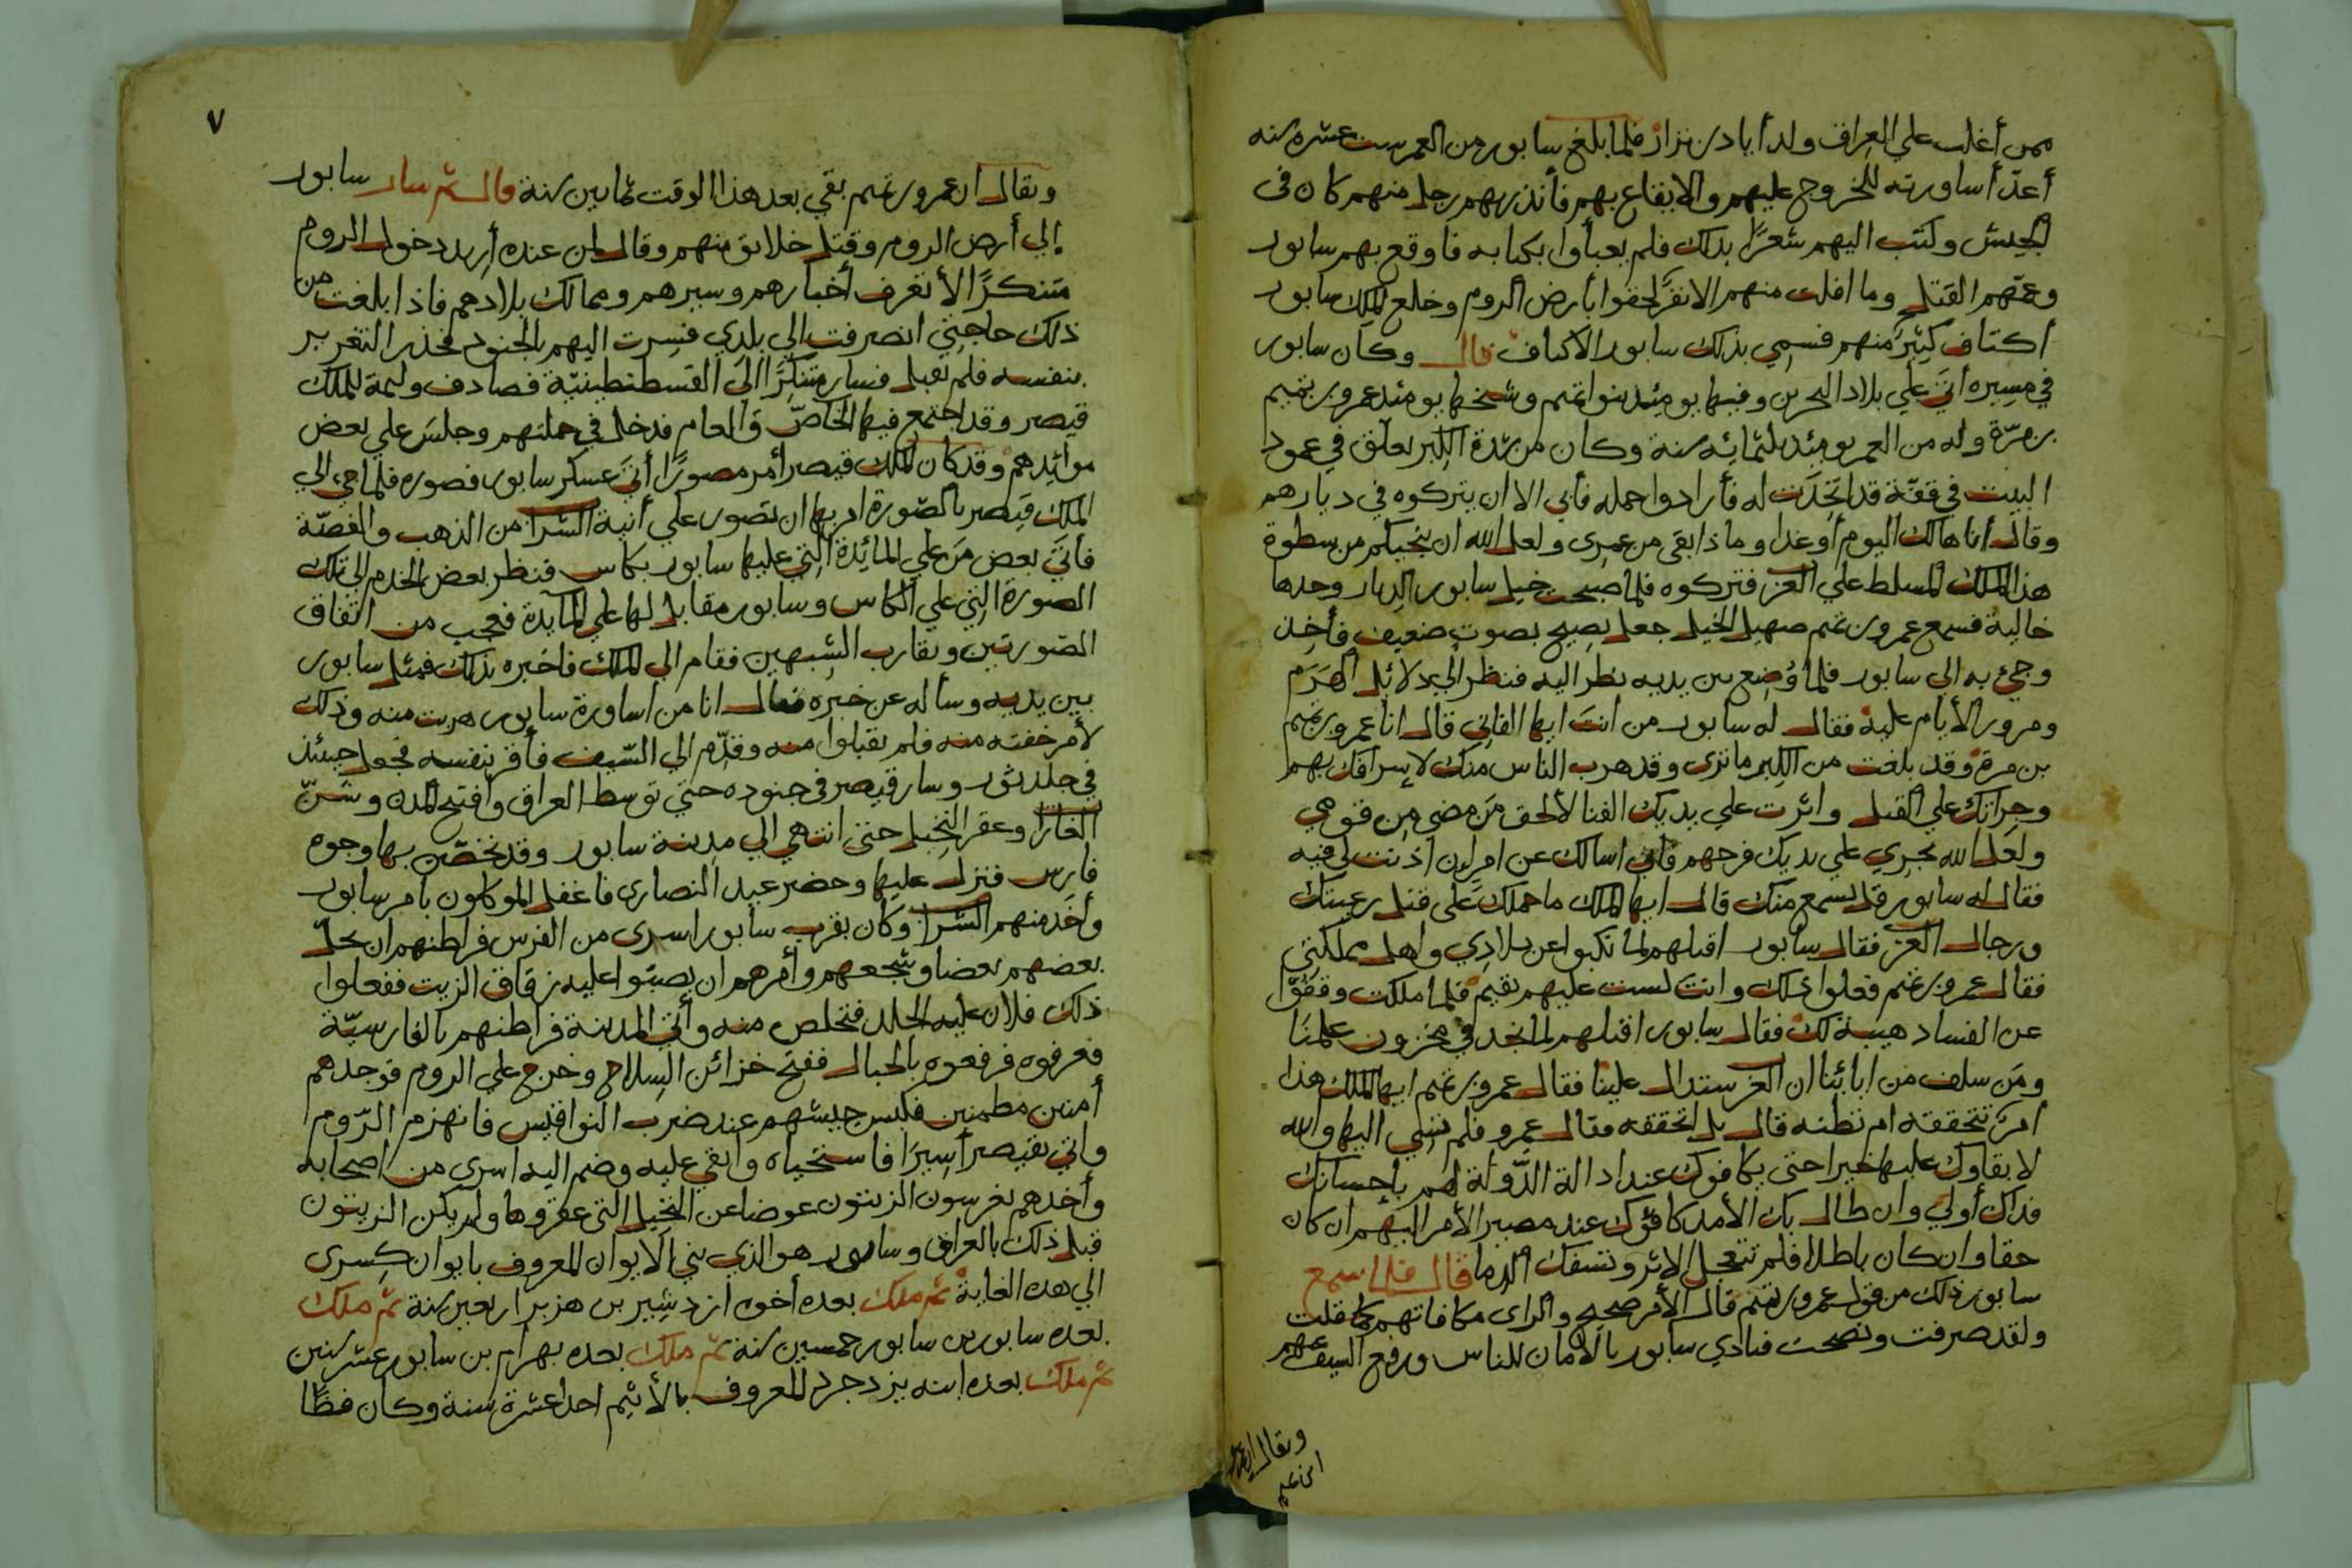 ممن أغلب علي العراق ولد أياد بن نزار فلما بلغ سابور من العمر ست عشره سنه
أعدّ أساورته للخروج عليهم والايقاع بهم فأنذر بهم رجل منهم كان فى
الجيش وكتب اليهم شعرًا بذلك فلم يعبأوا بكتابه فاوقع بهم سابور
وعمّهم القتل وما افلت منهم الا نفرًا لحقوا بأرض الروم وخلع الملك سابور
أكتاف كثيرً منهم فسمي بذلك سابور الاكتاف قال وكان سابور
في مسيره أتيَ علي بلاد البحرين وفيها يومئذ بنوا تميم وشيخها يومئذ عمرو بن تميم
بن مرّة وله من العمر يومئذ ثلثمائه سنة وكان من شدة الكِبر يعلق في عمود
البيت في قفّة قد اتخذت له فأرادوا حمله فأبي الا ان يتركوه في ديارهم
وقال أنا هالك اليوم أو غدا وماذا بقى من عمرى ولعل الله ان ينجيكم من سطوة
هذا الملك المسلط علي العز فتركوه فلما صبحت خيل سابور الديار وجدها
خالية فسمع عمرو بن تميم صهيل الخيل جعل يصيح بصوت ضعيف فأخِذ
وجيُ به الى سابور فلما وُضِع بين يديه نظر اليه فنظر الي دلائل الهَرَم
ومرور الأيام عليه فقال له سابور من انت ايها الفاني قال انا عمرو بن تميم
بن مرة وقد بلغت من الكِبر ما ترى وقد هرب الناس منك لإسرافك بهم
وجرأتك علي القتل واثرت علي يديك الفنا لألحق مَن مضي مِن قومي
ولعل الله يجري علي يديك فرجهم فاني اسالك عن امر ان اذنت لي فيه
فقال له سابور قل نسمع منك قال ايها الملك ما حملك على قتل رعيتك
ورجال العز فقال سابور اقتلهم لما نكبوا عن بلادي واهل مملكتي
فقال عمرو بن تميم فعلوا ذلك وانت لست عليهم بقيم فلما ملكت وقفوّا
عن الفساد هيبة لك فقال سابور اقتلهم لما نجد في مخزون علمنا
ومَن سلف من ابائنا ان العز ستدال علينا فقال عمرو بن تميم ايها الملك هذا
امرٌ تتحققه ام تظنه قال بل اتحققه فقال عمرو فلم تسي اليها والله
لا بقاوك عليها خيرا حتى يكافوك عند ادالة الدّولة لهم بإحسانك
فذاك أولي وان طال بك الأمد كافؤك عند مصير الأمر اليهم ان كان
حقا وان كان باطلا فلم تتعجل الاثم وتسفك الدما قال فلما سمع
سابور ذلك من قول عمرو بن تميم قال الأمر صحيح والراى مكافاتهم كما قلت
ولقد صرفت ونصحت فنادي سابور بالامان للناس ورفع السيف عنهم
ويقال ان عمرو
بن تميم
٧
ويقال ان عمرو بن تميم بقي بعد هذا الوقت ثمانين سنة قال ثم سار سابور
إلي أرض الروم وقتل خلايق منهم وقال لمن عنده أريد دخول الروم
متنكرًا لأتعرف أخبارهم وسيرهم وممالك بلادهم فاذا بلغت من
ذلك حاجتي انصرفت الي بلدي فسِرت اليهم بالجنود فحذر التغرير
بنفسه فلم يقبل فسار متنكرًا الىَ القسطنطينيّة فصادف وليمة للملك
قيصر وقد اجتمع فيها الخاصّ والعام فدخل في جملتهم وجلسَ علي بعض
موائدهم وقد كان الملك قيصر أمر مصورًا أتيَ عسكر سابور فصوره فلما جي الي
الملك قيصر بالصّورة امر بها ان تصور علي أنية الشرا من الذهب والفضّة
فأتيَ بعض مَن علي المائدة التي عليها سابور بكاس فنظر بعض الخدم الي تلك
الصورة التي علي الكاس وسابور مقابل لها علي المآيدة فعجب من اتفاق
الصّورتين وتقارب الشبهين فقام الي الملك فاخبره بذلك فمثل سابور
بين يديه وسأله عن خبره فقال انا من اساورة سابور هربت منه وذلك
لأمر خفته منه فلم يقبلوا منه وقدّم الي السّيف فأقر بنفسه فجعل حينئذ
في جلد ثور وسار قيصر في جنوده حتي توسط العراق وافتتح المدن وشنّ
الغارا وعقر النخيل حتي انتهي الي مدينة سابور وقد تحصّن بها وجوه
فارس فنزل عليها وحضر عيد النصارى فاغفل الموكلون بامر سابور
وأخَذ منهم الشرا وكان بقرب سابور اسرى من الفرس فراطنهم ان يحلّ
بعضهم بعضا وشجعهم وأمرهم ان يصبّوا عليه زقاق الزيت ففعلوا
ذلك فلان عليه الجلد فتخلص منه وأتي المدينة فراطنهم بالفارسيّة
فعرفوه فرفعوه بالحبال ففتح خزائن السِلاح وخرج علي الروم فوجدهم
أمنين مطمنين فكبس جيشهم عند ضرب النواقيس فانهزم الرّوم
واتي بقيصر أسيرًا فاستحياه وابقي عليه وضم اليه اسرى من اصحابه
وأخذهم بغرسون الزيتون عوضا عن النخيل التي عقروها ولم يكن الزيتون
قبل ذلك بالعراق وسابور هو الذي بني الايوان المعروف بايوان كسرى
الي هذه الغاية ثم ملك بعده أخوه ازدشير بن هزبر اربعين سنة ثم ملك
بعده سابور بن سابور خمسين سنة ثم ملك بعده بهرام بن سابور عشر سنين
ثم ملك بعده ابنه يزدجرد المعروف بالأثيم احد عشرة سنة وكان فظًا